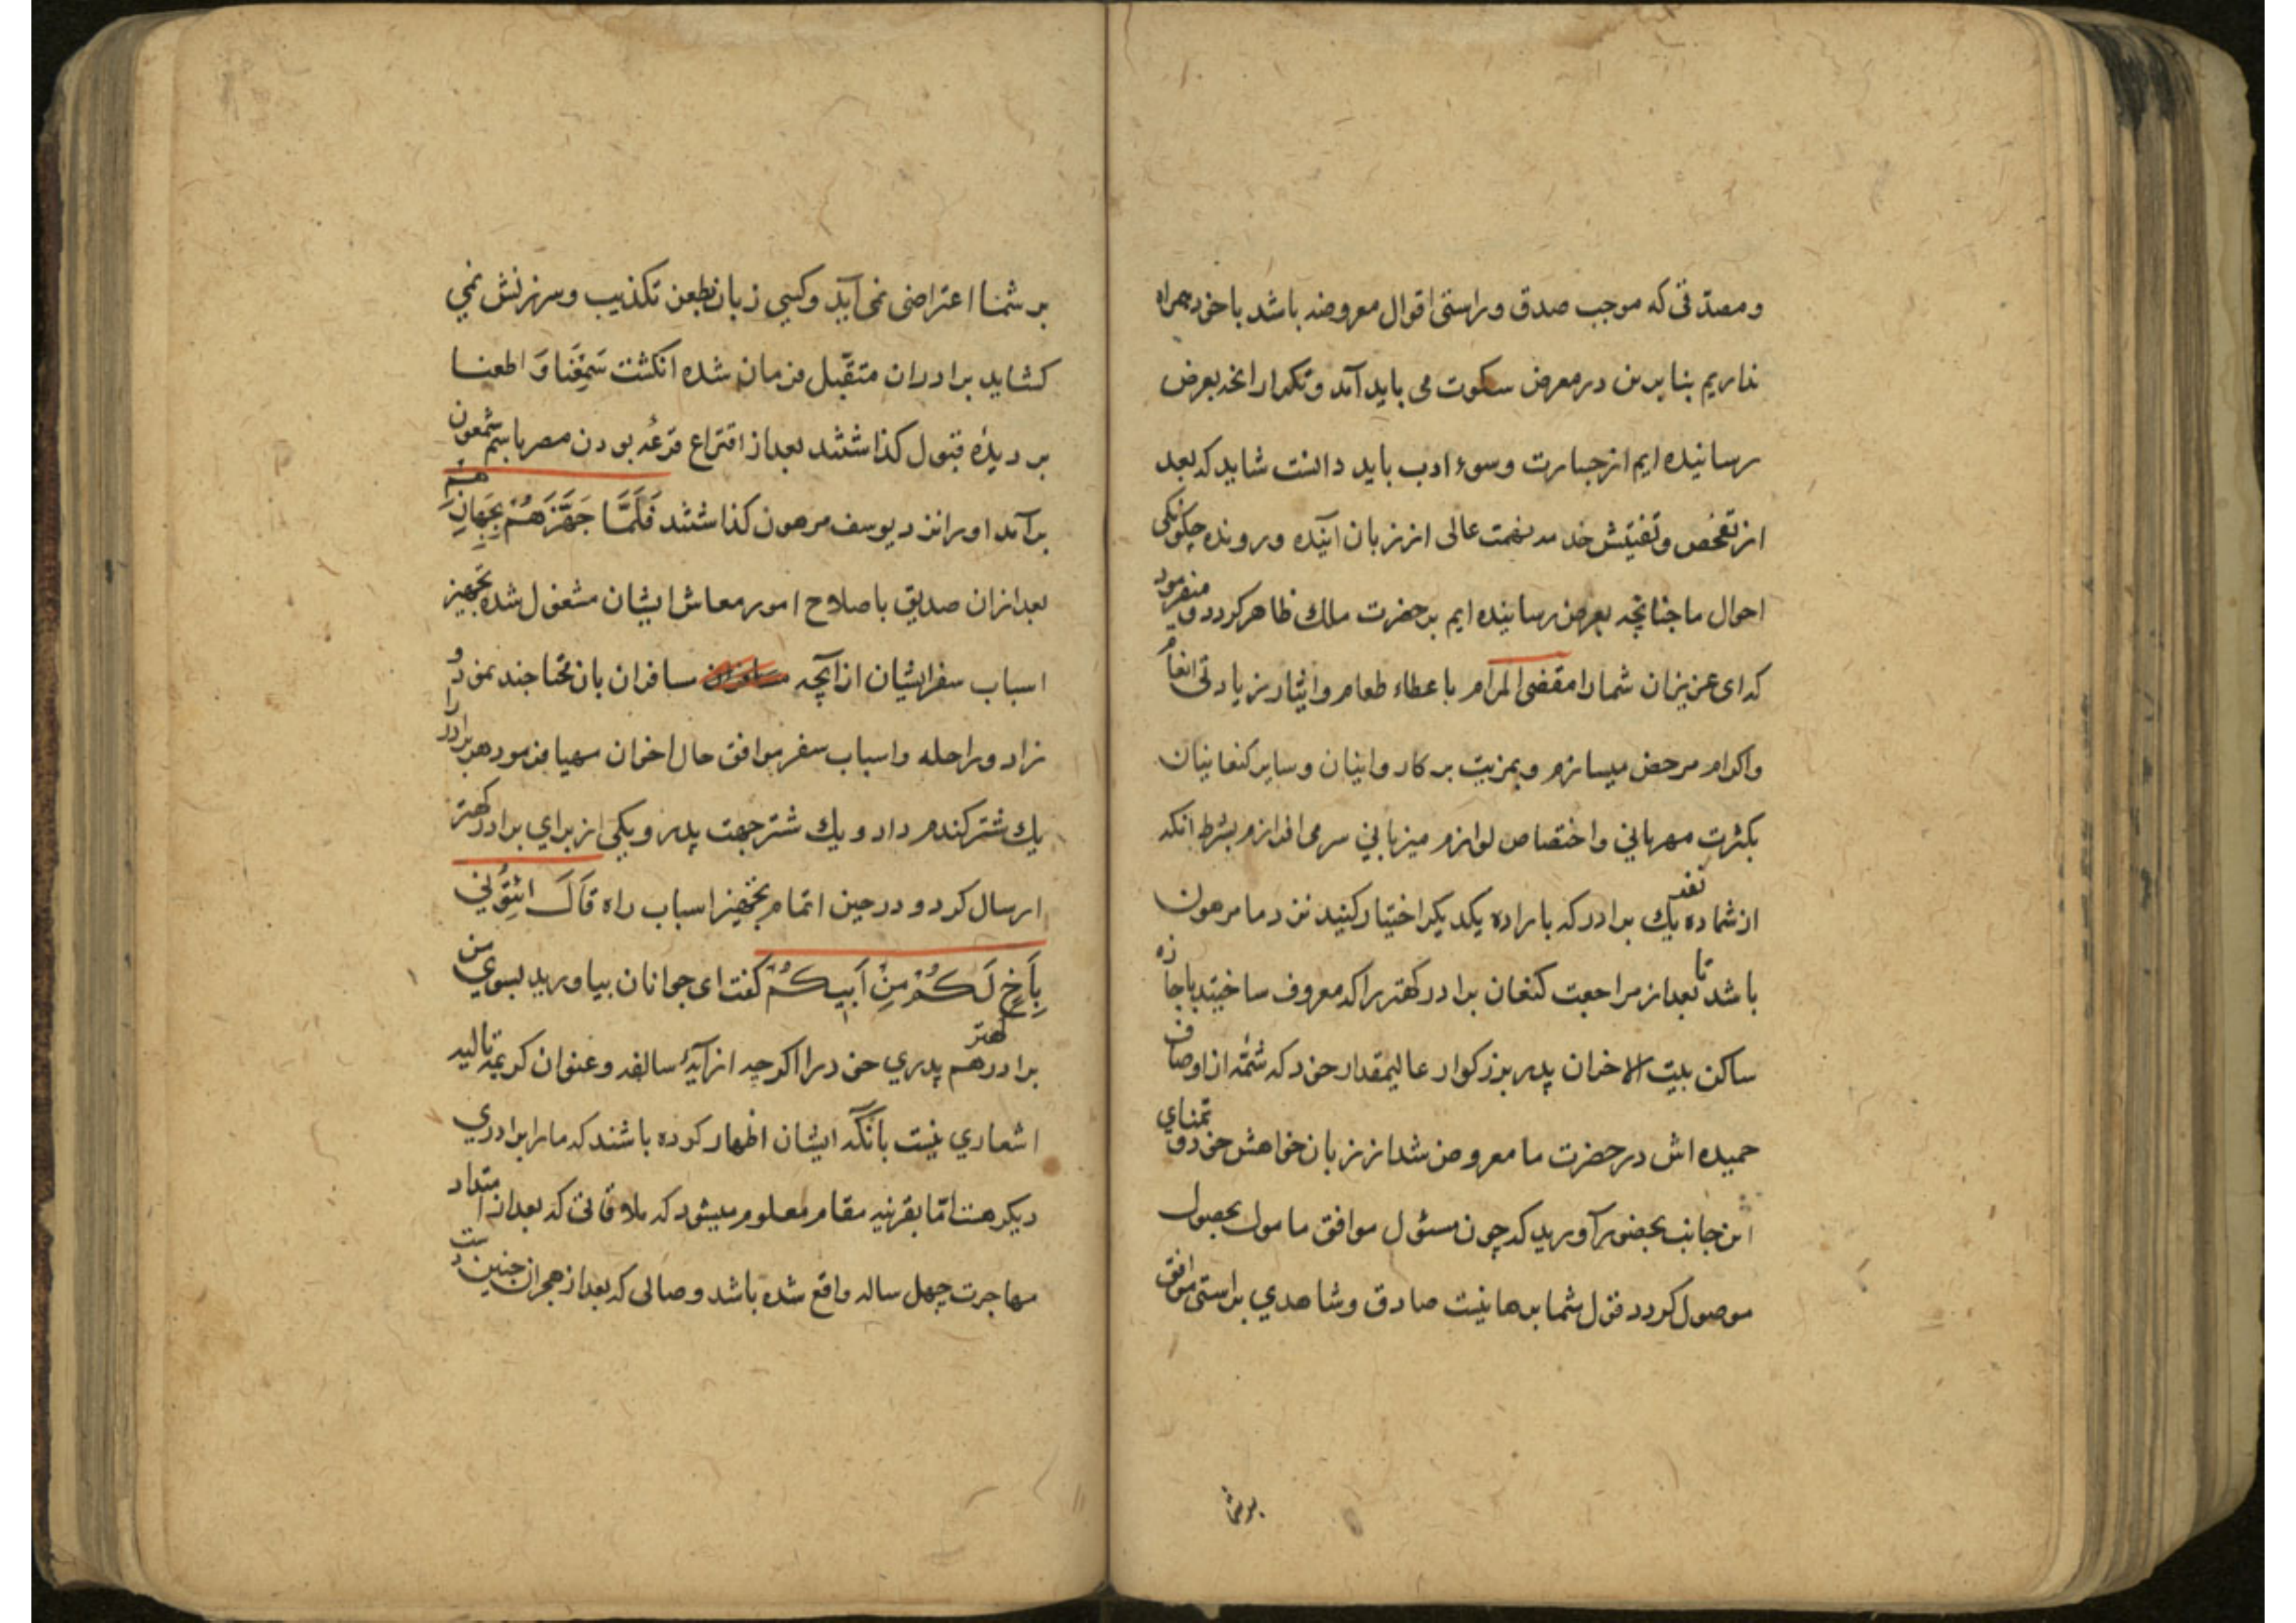 و مصدقی که موجب صدق و راستی اقوال معروضه باشد با خود همراه
نداریم بنابرین در معرض سکوت می باید آمد و تکرار انچه بعرض
رسانیده ایم از جسارت و سوء ادب باید دانست شاید که بعد
از تفحص و تفتیش عالی از زبان آینده و رونده چکونکی
احوال ما چنانچه بعرض رسانیده ایم بر حضرت ملك ظاهر کردد و میفرمود
که ای عزیزان شما را مقضی المرام باعطاء طعام و ایثار زیادتی انعام
واکرام مرخص میسازم و بمزیت بر کاروانیان و سایر کنعانیان
بکثرت مهربانی و اختصاص لوازم میزبانی سرمی افرازم بشرط آنکه
از شما ده نفر یك برادر که باراده یکدیکر اختیار کنید نزد ما مرهون
باشد تا بعد از مراجعت کنعان برادر کهتر را که معروف ساختید باجازه
ساکن بیت الاحزان پدر بزرکوار عالیمقدار خود که شمّه از اوصاف
حمیده اش در حضرت ما معروض شد از زبان خواهش خود و تمنای
این جانب بحضور آورید که چون مسئول موافق مامول بحصول
موصول کردد قول شما برهانیست صادق و شاهدی براستی موافق
بر شما
بر شما اعتراضی نمی آید و کسی زبان بطعن تکذیب و سرزنش نمی
کشاید برادران متقبّل فرمان شده انکشت سَمِعْنَا وَ اطعنا
بر دیدهٔ قبول کذاشتند بعد از اقتراع قرعُه بودن مصر باسم شمعون
برآمد او را نزد یوسف مرهون کذاشتند فَلَمَّا جَهَّزَهُمْ بِجَهَازِهِمْ
بعد ازان صدیق باصلاح امور معاش ایشان مشغول شده تجهیز
اسباب سفر ایشان از آنچه مسافران بان محتاجند نمود و
زاد و راحله و اسباب سفر موافق حال اخوان مهیا فرمود هر برادر را
یك شتر کندم داد و یك شتر جهت پدر و یکی از برای برادر کهتر
ارسال کرد و در حین اتمام تجهیز اسباب راه قَالَ ائْتُوْنِی
بِاَخٍ لَكُمْ مِنْ اَبِیكُمْ کفت ای جوانان بیاورید بسوی من
برادر کهتر هم پدری خود را اکرچه از آیهٔ سالفه و عنوان کریمهٔ تالیه
اشعاری نیست بانکه ایشان اظهار کرده باشند که ما را برادری
دیکر هست امّا بقرنیه مقام معلوم میشود که ملاقاتی که بعد از امتداد
مهاجرت چهل ساله واقع شده باشد و صالی که بعد از هجران چنین